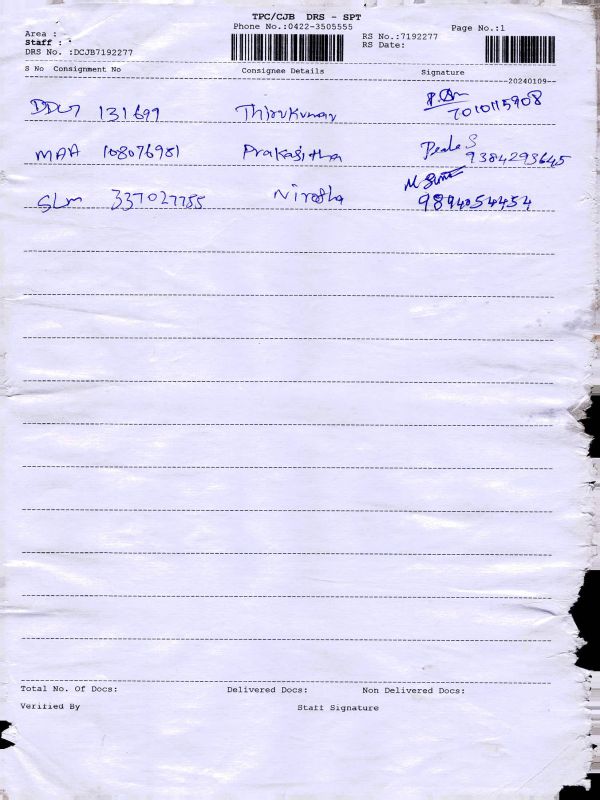 TPC/CJB DRS - SPT
Phone No.:0422-3505555
Page No.:1
Area :
Staff :
DRS No. :DCJB7192277
RS No.:7192277
RS Date:
S No Consignment No Consignee Details Signature
20240109
131699 Thirukumar
7010115908
MAA 108076981 Prakasitha
9384293645
SLM 337027755 Nirosha
9894054454
Total No. Of Docs: Delivered Docs: Non Delivered Docs:
Verified By Staff Signature